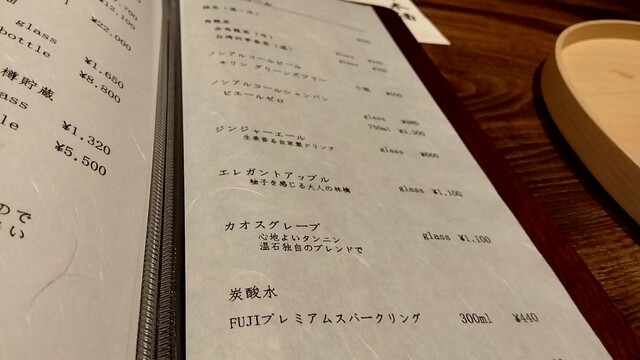 ¥12,100
glass ¥22,000
bottle
¥1,650
¥8,800
樽貯蔵
¥1,320
¥5,500
ので
さい
烏龍茶
ノンアルコールビール glass
キリン グリーンズフリー 小瓶
ノンアルコールシャンパン
ピエールゼロ glass
750ml ¥3,300
ジンジャーエール glass ¥660
生姜香る自家製ドリンク
エレガントアップル glass ¥1,100
柚子を感じる大人の林檎
カオスグレープ glass ¥1,100
心地よいタンニン
温石独自のブレンドで
炭酸水
FUJIプレミアムスパークリング 300ml ¥440